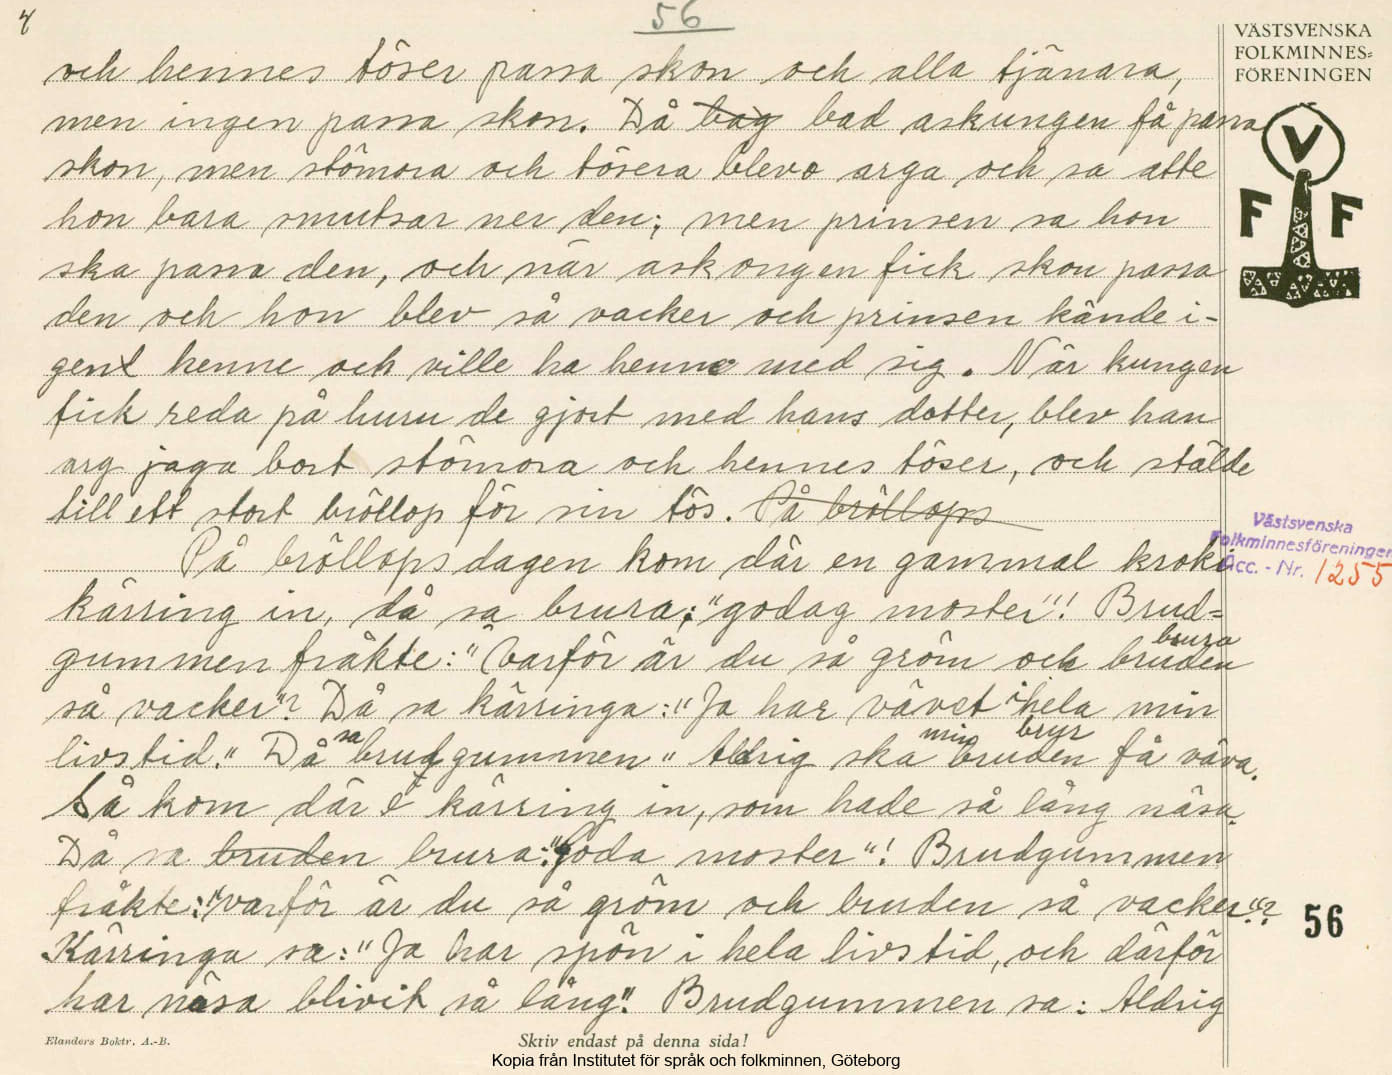 4
56
VÄSTSVENSKA
FOLKMINNES=
FÖRENINGEN
och hennes töser passa skon och alla tjänara,
men ingen passa skon. Då bag bad askungen få passa
skon, men stömora och tösera blevo arga och sa atte
hon bara smutsar ner den; men prinsen sa hon
ska passa den, och när askongen fick skon passa
den och hon blev så vacker och prinsen kände i-
gen henne och ville ha henne med sig. När kungen
fick reda på huru de gjort med hans dotter, blev han
arg jaga bort stömora och hennes töser, och stälde
till ett stort bröllop för sin tös. På bröllops
På bröllopsdagen kom där en gammal kroki
kärring in, då sa brura; "godag moster"! Brud=
gummen fråkte: "Varför är du så gröm och bruden brura
så vacker"? Då sa kärringa: "Ja har vävet i hela min
livstid." Då sa brudgummen "Aldrig ska min bruden brur få väva.
Så kom där e kärring in, som hade så lång näsa.
Då sa bruden brura: "Goda moster"! Brudgummen
fråkte: "varför är du så gröm och bruden så vacker"?
Kärringa sa: "Ja har spön i hela livstid, och därför
har näsa blivit så lång". Brudgummen sa: Aldrig
V
F F
Västsvenska
Folkminnesföreningen
Acc. - Nr. 1255
56
Elanders Boktr. A.-B.
Skriv endast på denna sida!
Kopia från Institutet för språk och folkminnen, Göteborg